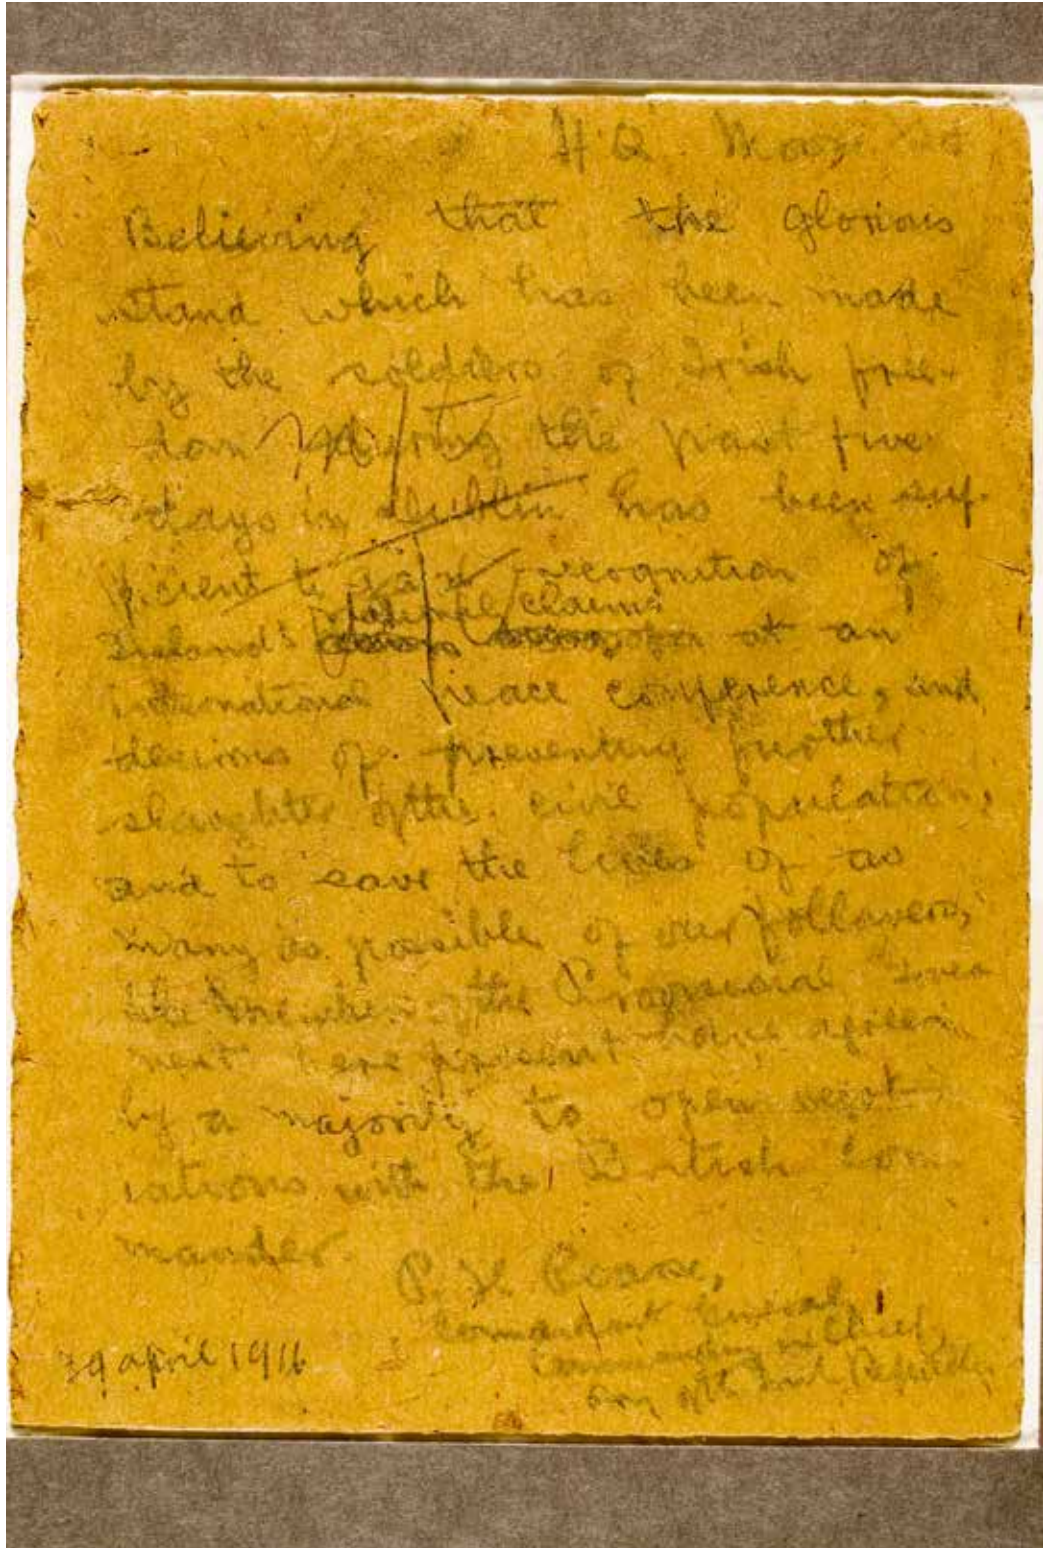 H Q Moore St
Believing that the glorious
stand which has been made
by the soldiers of Irish free-
dom during the past five
days in Dublin has been suf-
ficient to gain recognition of
Ireland's national claims at an
international peace conference, and
desirous of preventing further
slaughter of the civil population,
and to save the lives of as
many as possible of our followers,
the members of the Provisional Govern
ment here present have agreed
by a majority to open negot
iations with the British com
mander.
P. H. Pearse,
Commandant General,
Commanding in Chief,
Army of the Irish Republic
29 April 1916